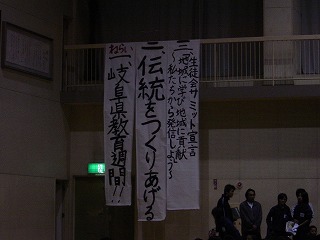 ねらい
一、岐阜県教育週間!!
二、伝統をつくりあげる
三、生徒会サミット宣言
「地域に学び地域に貢献
〜私たちから発信しよう〜